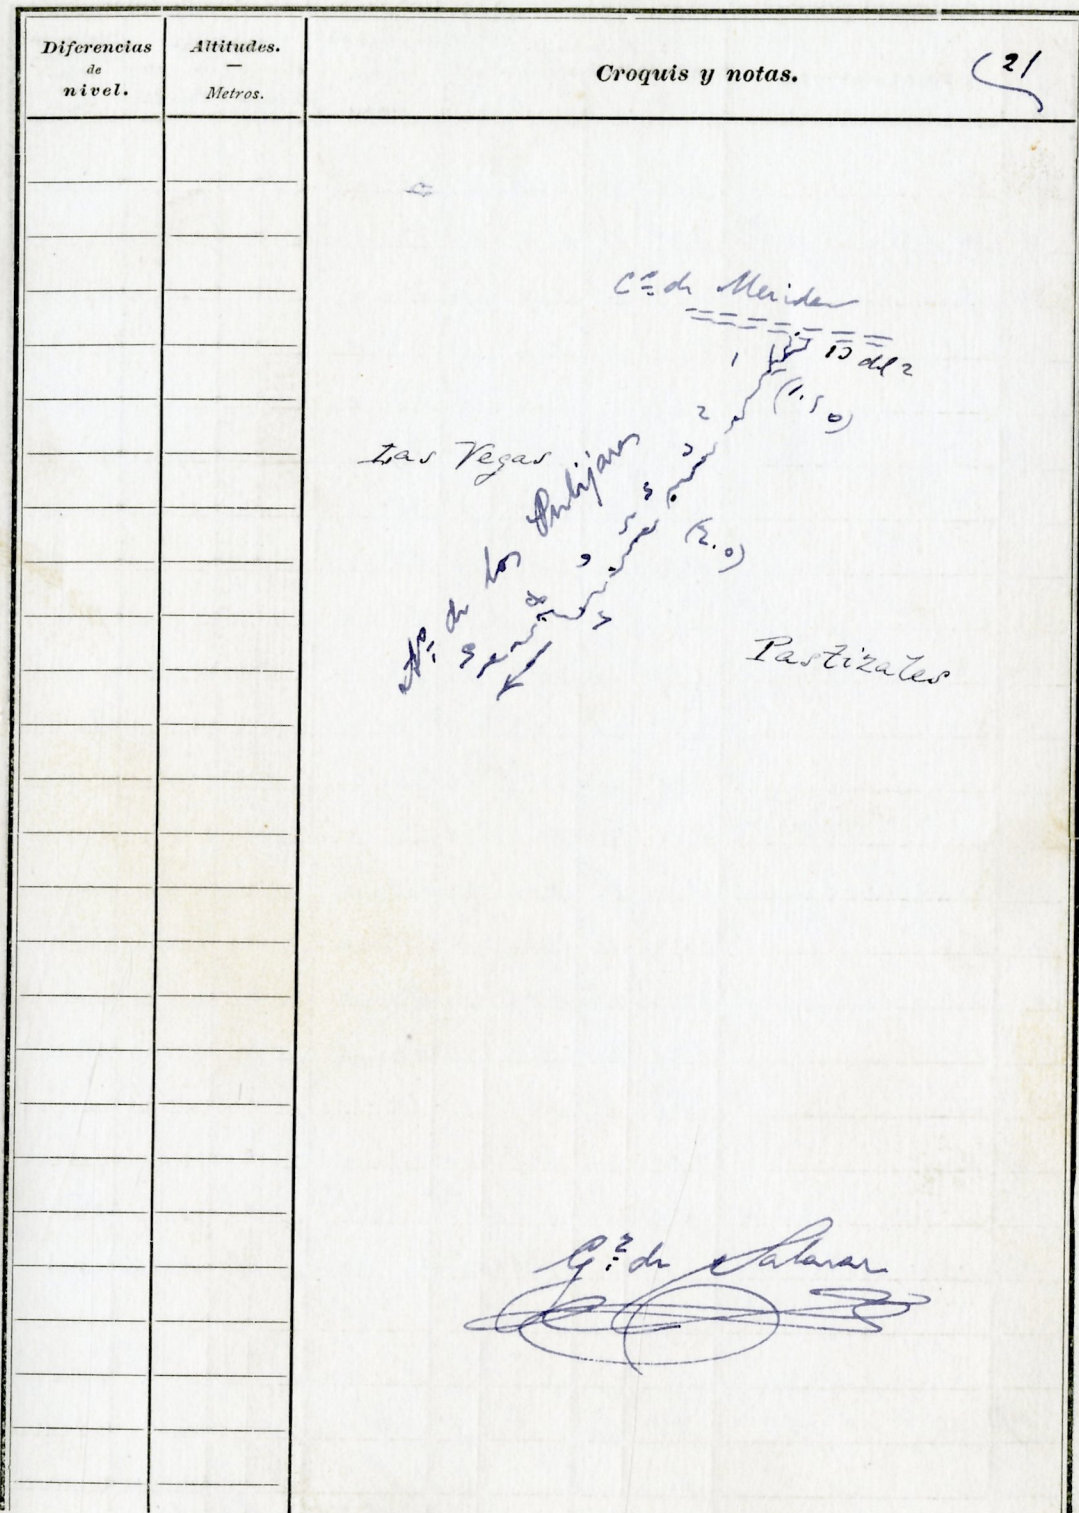 Diferencias
de
nivel.
Altitudes.
—
Metros.
Croquis y notas.
(21
Cª de Merida
1
10 del 2
(1.50)
2
3
Las Vegas
(2.0)
Aº de los
8
9
Pastizales
Gª de Salazar